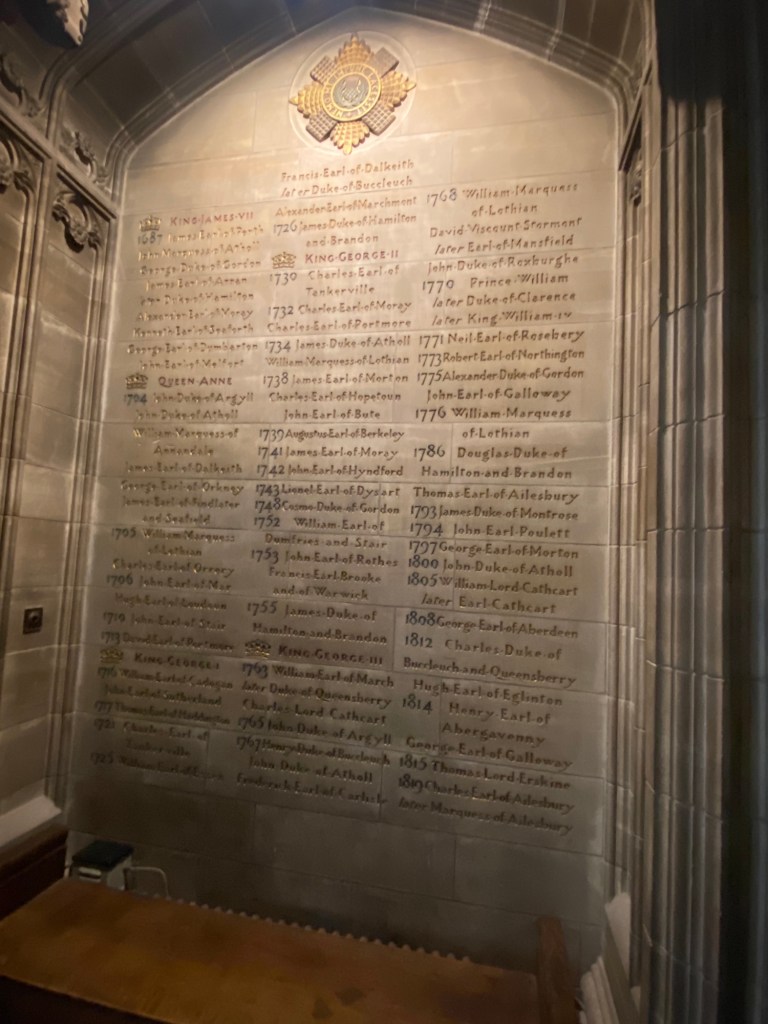 Francis·Earl·of·Dalkeith
later Duke·of·Buccleuch
KING·JAMES·VII
1687 James·Earl·of·Perth
John·Marquess·of·Atholl
George·Duke·of·Gordon
James·Earl·of·Arran
John·Duke·of·Hamilton
Alexander·Earl·of·Moray
Kenneth·Earl·of·Seaforth
George·Earl·of·Dumbarton
John·Earl·of·Melfort
QUEEN·ANNE
1704 John·Duke·of·Argyll
John·Duke·of·Atholl
William·Marquess·of
Annandale
James·Earl·of·Dalkeith
George·Earl·of·Orkney
James·Earl·of·Findlater
and·Seafield
1705 William·Marquess
of·Lothian
Charles·Earl·of·Orrery
1706 John·Earl·of·Mar
Hugh·Earl·of·Loudoun
1710 John·Earl·of·Stair
1713 David·Earl·of·Portmore
KING·GEORGE·I
1716 William·Earl·of·Cadogan
John·Earl·of·Sutherland
1717 Thomas·Earl·of·Haddington
1721 Charles·Earl·of
Tankerville
1725 William·Earl·of·Essex
Alexander·Earl·of·Marchmont
1726 James·Duke·of·Hamilton
and·Brandon
KING·GEORGE·II
1730 Charles·Earl·of
Tankerville
1732 Charles·Earl·of·Moray
Charles·Earl·of·Portmore
1734 James·Duke·of·Atholl
William·Marquess·of·Lothian
1738 James·Earl·of·Morton
Charles·Earl·of·Hopetoun
John·Earl·of·Bute
1739 Augustus·Earl·of·Berkeley
1741 James·Earl·of·Moray
1742 John·Earl·of·Hyndford
1743 Lionel·Earl·of·Dysart
1748 Cosmo·Duke·of·Gordon
1752 William·Earl·of
Dumfries·and·Stair
1753 John·Earl·of·Rothes
Francis·Earl·Brooke
and·of·Warwick
1755 James·Duke·of
Hamilton·and·Brandon
KING·GEORGE·III
1763 William·Earl·of·March
later Duke·of·Queensberry
Charles·Lord·Cathcart
1765 John·Duke·of·Argyll
1767 Henry·Duke·of·Buccleuch
John·Duke·of·Atholl
Frederick·Earl·of·Carlisle
1768 William·Marquess
of·Lothian
David·Viscount·Stormont
later Earl·of·Mansfield
John·Duke·of·Roxburghe
1770 Prince·William
later Duke·of·Clarence
later King·William·IV
1771 Neil·Earl·of·Rosebery
1773 Robert·Earl·of·Northington
1775 Alexander·Duke·of·Gordon
John·Earl·of·Galloway
1776 William·Marquess
of·Lothian
1786 Douglas·Duke·of
Hamilton·and·Brandon
Thomas·Earl·of·Ailesbury
1793 James·Duke·of·Montrose
1794 John·Earl·Poulett
1797 George·Earl·of·Morton
1800 John·Duke·of·Atholl
1805 William·Lord·Cathcart
later Earl·Cathcart
1808 George·Earl·of·Aberdeen
1812 Charles·Duke·of
Buccleuch·and·Queensberry
Hugh·Earl·of·Eglinton
1814 Henry·Earl·of
Abergavenny
George·Earl·of·Galloway
1815 Thomas·Lord·Erskine
1819 Charles·Earl·of·Ailesbury
later Marquess·of·Ailesbury